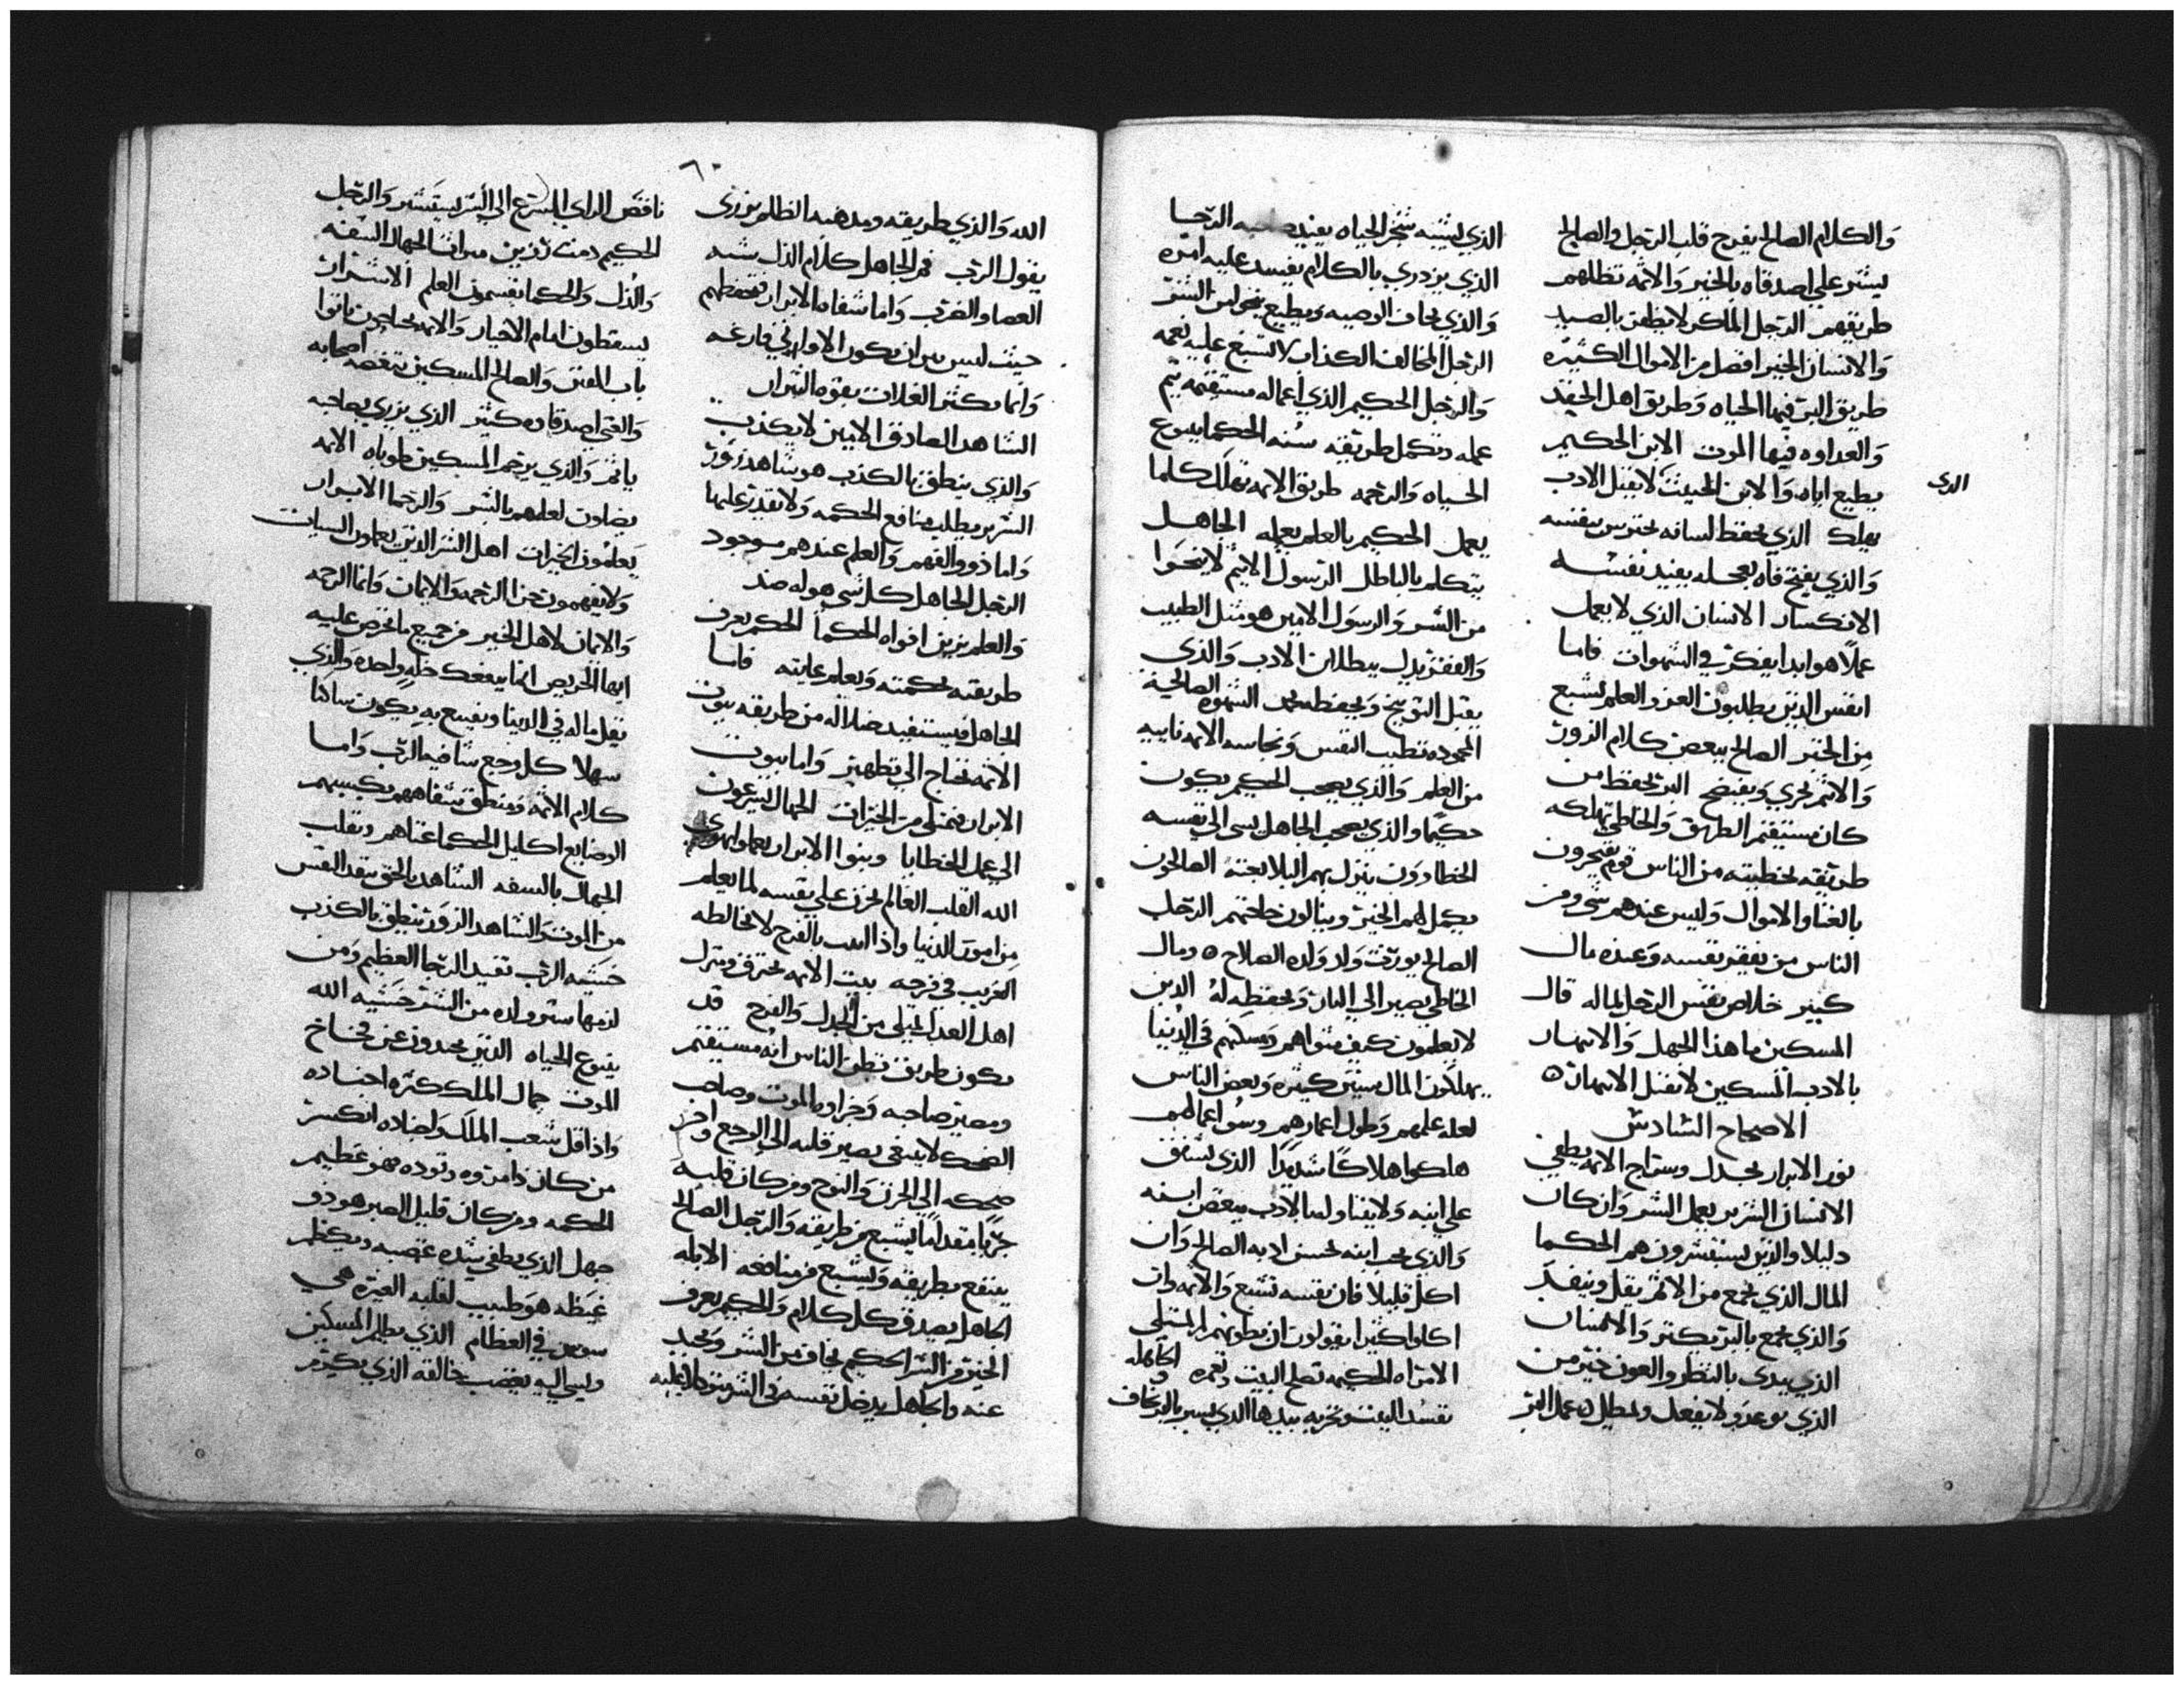 والكلام الصالح يفرح قلب الرجل والصالح
يشير علي اصدقاه بالخير والاثمه تظلهم
طريقهم الرجل الماكر لا يظفر بالصيد
والانسان الخير افضل من الاموال الكثيره
طريق البر فيها الحياه وطريق اهل الحقد
والعداوه فيها الموت الابن الحكيم
يطيع اباه والابن الخبيث لا يقبل الادب
الذي
يهلك الذي يحفظ لسانه يحترس بنفسه
والذي يفتح فاه بعجله يفيد نفسه
الانكسار الانسان الذي لا يعمل
عملًا هو ابدا يفكر في الشهوات فاما
انفس الذين يطلبون العز والعلم تشبع
من الخير الصالح يبغض كلام الزور
والاثيم يخزي ويفتضح البر يحفظ من
كان مستقيم الطريق والخاطي تهلكه
طريقه بخطيته من الناس قوم يفتخرون
بالغنا والاموال وليس عندهم شي ومن
الناس من يفقر نفسه وعنده مال
كبير خلاص نفس الرجل ماله قال
المسكين ما هذا الجهل والانتهار
بالادب المسكين لا يقبل الانتهار ٥
الاصحاح السادس
نور الابرار يجدل وسراج الاثمه يطفي
الانسان الشرير يعمل الشر وان كان
دليلا والذين يستشيرون هم الحكما
المال الذي يجمع من الاثم يقل وينفد
والذي يجمع بالبر يكثر والانسان
الذي يبدي بالنظر والعون خير من
الذي يوعد ولا يفعل وتعطيل عمل البر
الذي يشبه شجر الحياه يفيد صاحبه الرجا
الذي يزدري بالكلام يفسد عليه امره
والذي يخاف الوصيه ويطيع ينجو من الشر
الرجل المخالف الكذاب لا تسبغ عليه نعمه
والرجل الحكيم الذي اعماله مستقيمه يتم
عمله وتكمل طريقه سنه الحكما ينبوع
الحياه والرحمه طريق الاثمه تهلك كلما
يعمل الحكيم بالعلم يعمله الجاهل
يتكلم بالباطل الرسول الاثيم لا ينجوا
من الشر والرسول الامين هو مثل الطبيب
والفقر يدل يبطل ابن الادب والذي
يقبل التوبيخ ويحفظه يحمد الشهوه الصالحه
المحموده تطيب النفس ونجاسه الاثمه نابيه
من العلم والذي يصحب الحكيم يكون
حكيما والذي يصحب الجاهل يسي الي نفسه
الخطاوون ينزل بهم البلا بغته الصالحون
يكمل لهم الخير وينالون حاجتهم الرجل
الصالح يورثه ولد ولده الصلاح ٥ ومال
الخاطي يصير الي البار ويحفظه له الذين
لا يعلمون كيف مثواهم ومسكنهم في الدنيا
يهلكون المال سنين كثيره وبعض الناس
لعله علمهم وطول اعمارهم وسو اعمالهم
هلكوا هلاكًا شديدًا الذي يشفق
علي ابنه ولا يتناوله بالادب يبغض ابنه
والذي يحب ابنه يحسن ادبه الصالح وان
اكل قليلا فان نفسه تشبع والاثمه وان
اكلوا كثيرا يقولون ان بطونهم لم تمتلي
الامراه الحكيمه تصلح البيت وتعمره والجاهله
تفسد البيت وتخربه بيديها الذي يسير بالبر يخاف
٦٠
الله والذي طريقه ومذهبه الظلم يزري
بقول الرب فم الجاهل كلام الذل شبه
العصا والضرب واما شفاه الابرار تحفظهم
حيث ليس بيران يكون الاواري فارغه
وانما يكثر الغلات بقوه الثيران
الشاهد الصادق الامين لا يكذب
والذي ينطق بالكذب هو شاهد زور
الشرير يطلب منافع الحكمه ولا يقدر عليها
واما ذوو الفهم والعلم عندهم موجود
الرجل الجاهل كل شي هو له ضد
والعلم يزين افواه الحكما الحكيم يعرف
طريقه بحكمته ويعلم عايته فاما
الجاهل فيستفيد ضلاله من طريقه بيوت
الاثمه تحتاج الي تطهير واما بيوت
الابرار فتمتلي من الخيرات الجهال يسرعون
الي عمل الخطايا وبنوا الابرار يعملوا بهوي
الله القلب العالم يحزن علي نفسه لما يعلم
من امور الدنيا واذا التب بالفرح لا تخالطه
الغريب في فرحه بيت الاثمه يحترق ومنزل
اهل العدل يمتلي من الجدل والفرح قد
يكون طريق تظن الناس انه مستقيم
ومصير صاحبه وجزاوه الموت وصاحب
الضحك لا يبقي يصير قلبه الي الوجع واخر
ضحكه الي الحزن والنوح ومن كان قلبه
جريًا مقدامًا يشبع من طريقه والرجل الصالح
ينتفع بطريقه ويشبع من منافعه الابله
الجاهل يصدق كل كلام والحكيم يعرف
الخير من الشر الحكيم يخاف من الشر ويحيد
عنه والجاهل يدخل نفسه في الشر
ناقص الراي يسرع الي الشر يستبشر والرجل
الحكيم دمث رزين ميراث الجهال السفه
والذل والحكما يقسمون العلم الاشرار
يسقطون امام الاخيار والاثمه يحتاجون ياتوا
باب المقتر والصالح المسكين تبغضه اصحابه
والغني اصدقاوه كثير الذي يزري بصاحبه
ياثم والذي يرحم المسكين طوباه الاثمه
يضلون لعلمهم بالشر والرحما الابرار
يعلمون الخيرات اهل الشر الذين يعملون السيات
ولا يفهمون نحن الرحمه والايمان وانما الرحمه
والايمان لاهل الخير من جميع ما تحرص عليه
ايها الحريص انما ينفعك خله واحده والذي
يقل ماله في الدنيا ويقنع به يكون ساكنا
سهلا كل وجع شافيه الرب واما
كلام الاثمه ومنطق شفاههم يكسبهم
الوضايع اكليل الحكما غناهم وتقلب
الجهال بالسفه الشاهد بالحق ينقذ النفس
من الموت والشاهد الزور ينطق بالكذب
خشيه الرب تفيد الرجا العظيم ومن
لزمها ستر ولده من الشر خشيه الله
ينبوع الحياه الذين يحيدون عن فخاخ
الموت جمال الملك كثره اجناده
واذا قل شعب الملك ولفلاه انكسر
من كان ذا مروه وتوده فهو عظيم
الحكمه ومن كان قليل الصبر هو ذو
جهل الذي يطفي شده غضبه ويكظم
غيظه هو طبيب لقلبه الغيره هي
سوس في العظام الذي يظلم المسكين
ويسي اليه يغضب خالقه الذي يكرم